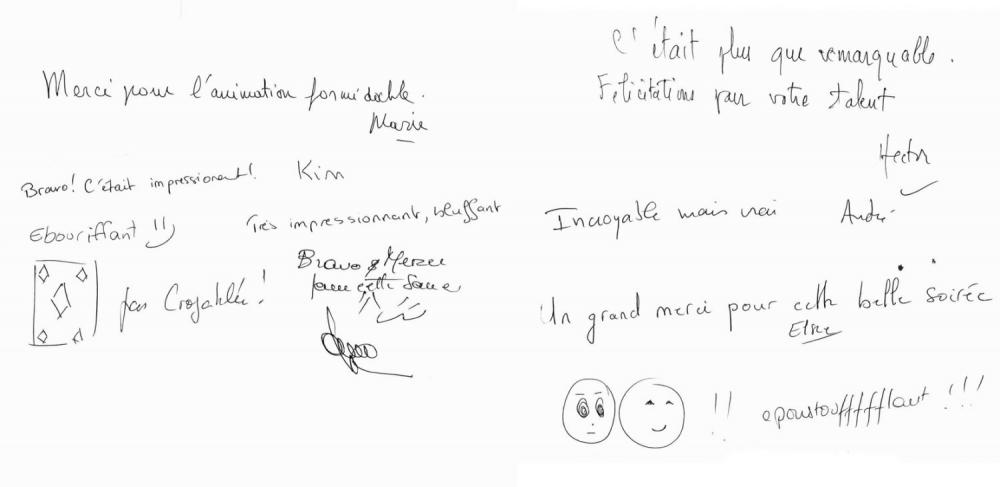 Merci pour l'animation formidable.
Marie
Bravo! C'était impressionant! Kim
Ebouriffant !!
Très impressionnant, bluffant
pas Croyable!
Bravo & Merci
pour cette
C'était plus que remarquable.
Félicitations pour votre talent
Hector
Incroyable mais vrai André
Un grand merci pour cette belle soirée
!! epoustoufffffflant !!!